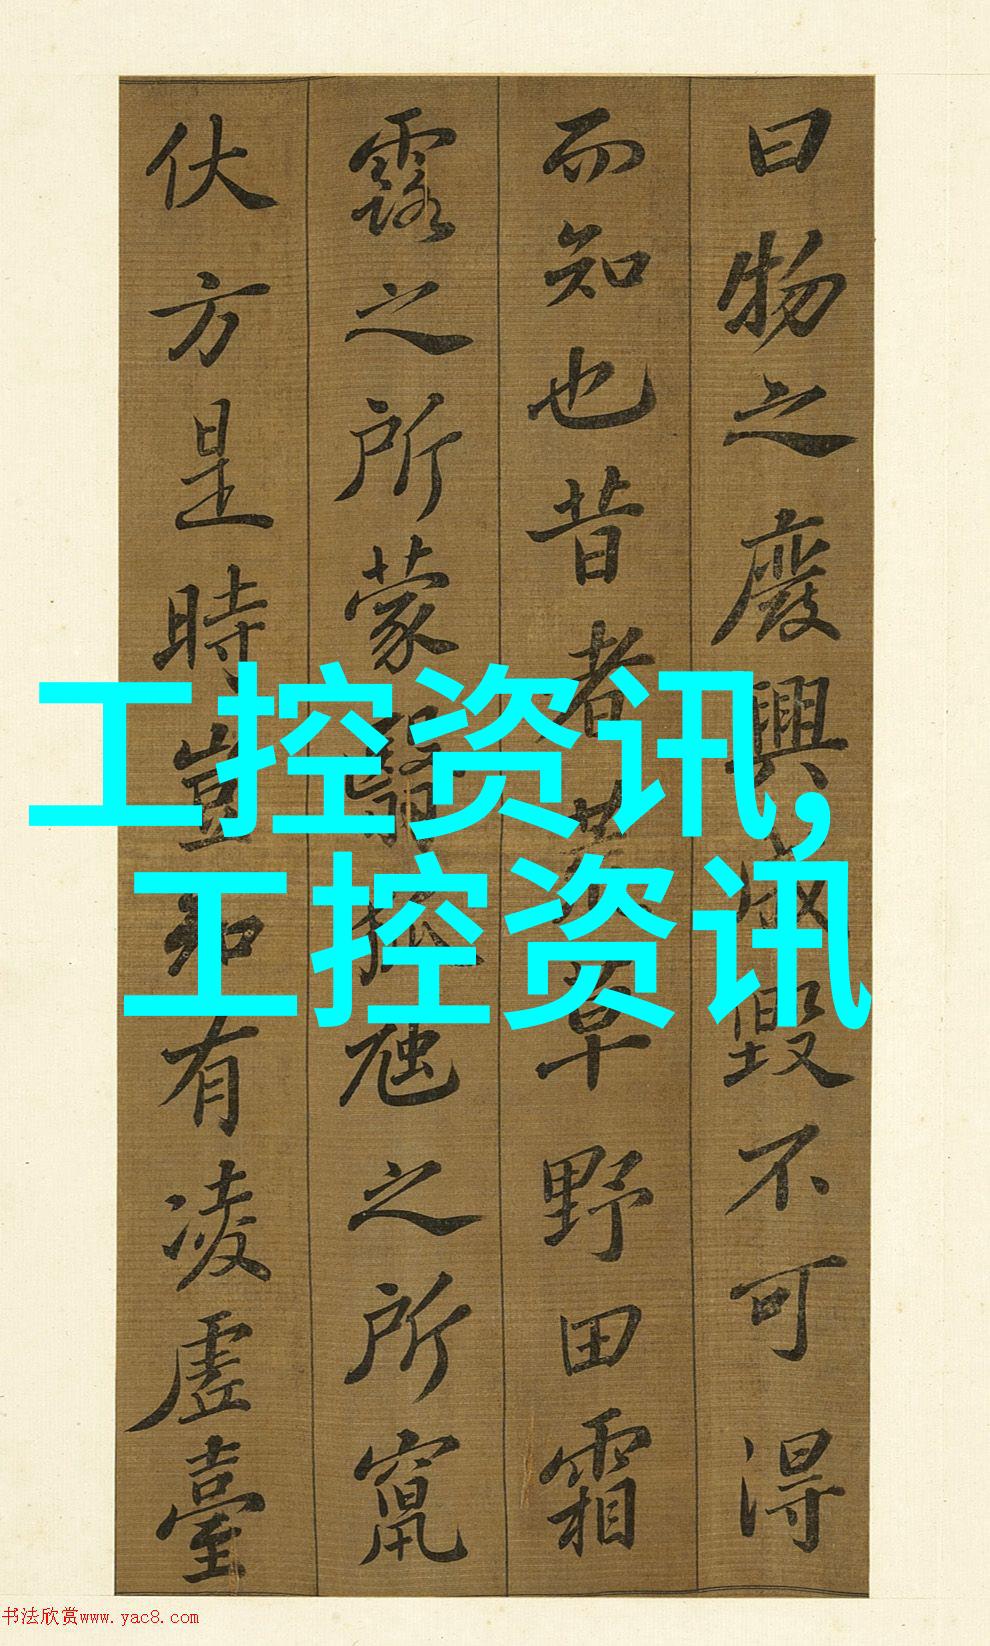 曰物之廢興成毀不可得
而知也昔者荒草野田霜
露之所蒙翳狐虺之所竄
伏方是時豈知有凌虛臺
工控资讯,
工控资讯
书法欣赏www.yac8.com